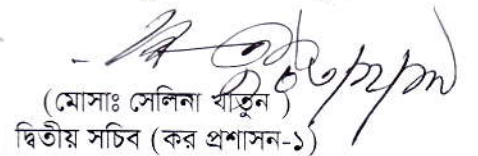 (মোসাঃ সেলিনা খাতুন)
দ্বিতীয় সচিব (কর প্রশাসন-১)